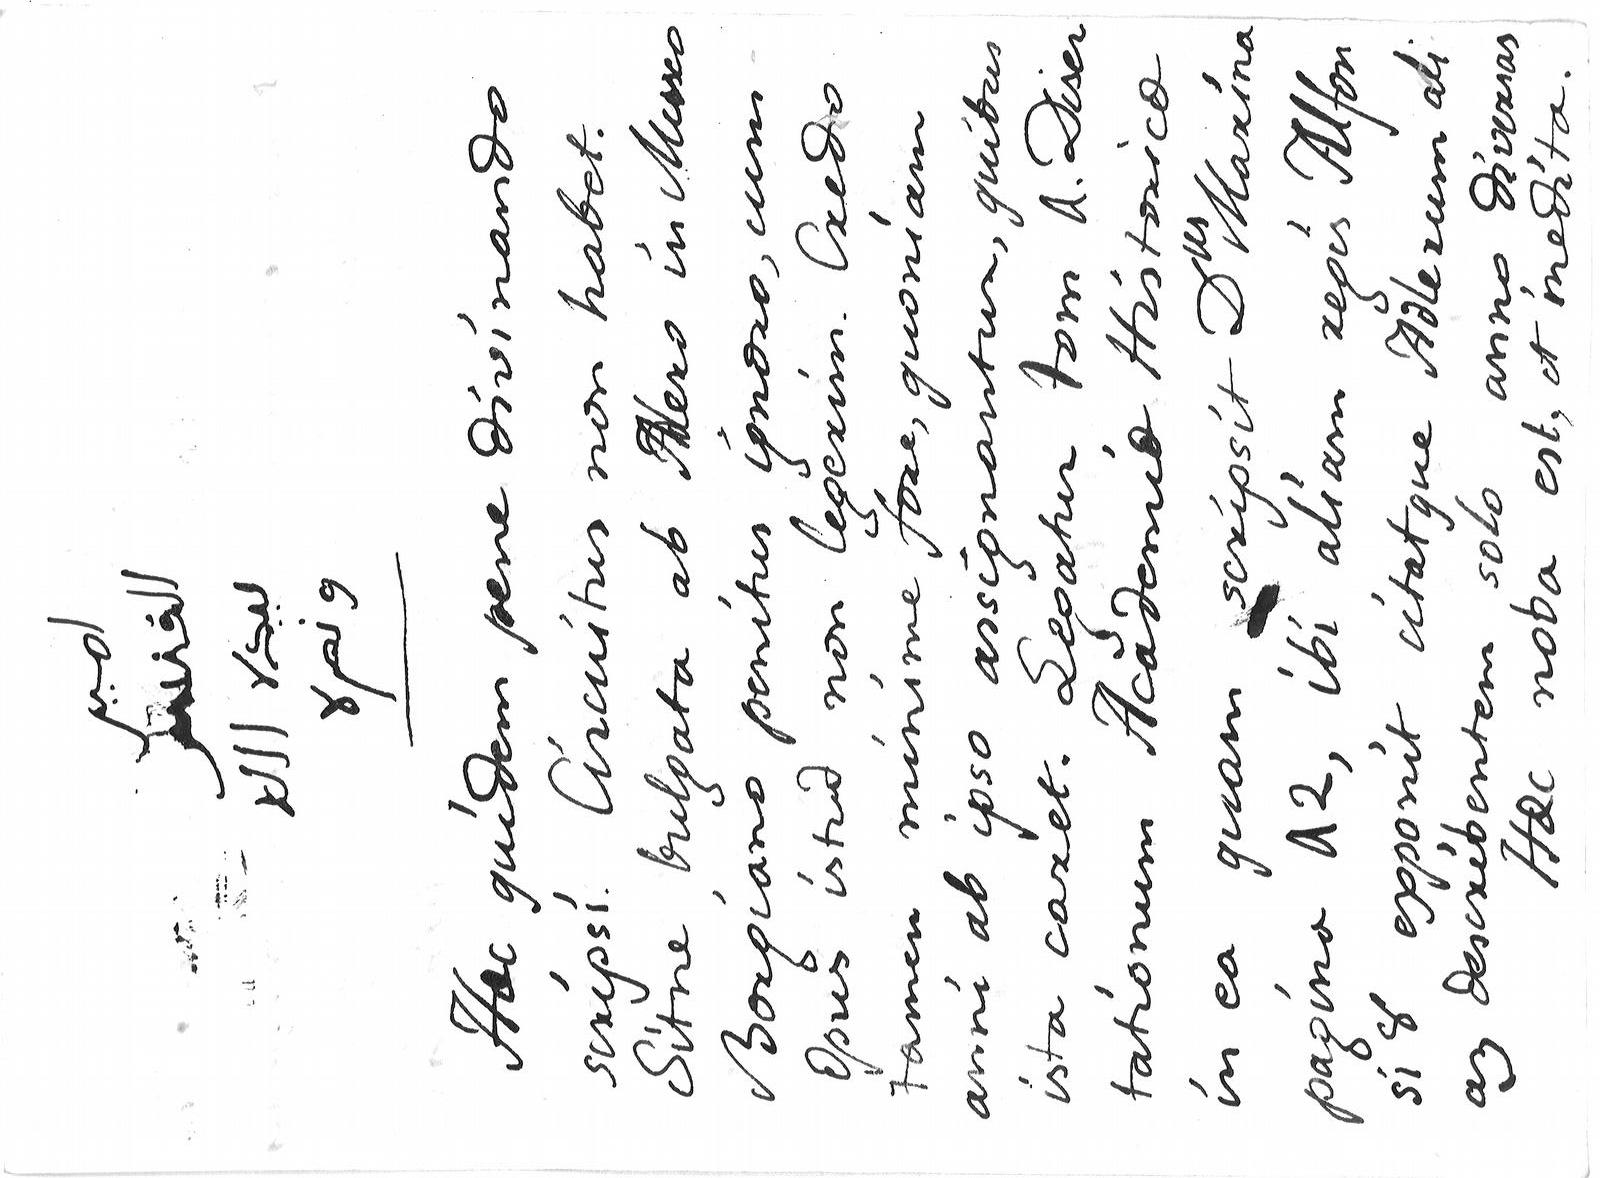 امير
الفنش
ايده الله
ونصره
Hæc quidem pene divinando
scripsi. Circuitus non habet.
Sitne vulgata ab Adlero in Museo
Borgiano penitus ignoro, cum
opus istud non legerim. Credo
tamen minime fore, quoniam
anni ab ipso assignantur, quibus
ista caret. Legatur tom 8. Diser
tationum Academiæ Historicæ
in ea quam scripsit Dnus Maxina
pagina 42, ibi aliam regis Alfon
si 8 exponit citatque Adlerum ali
as describentem solo anno diversas
Hæc noba est, et inedita.